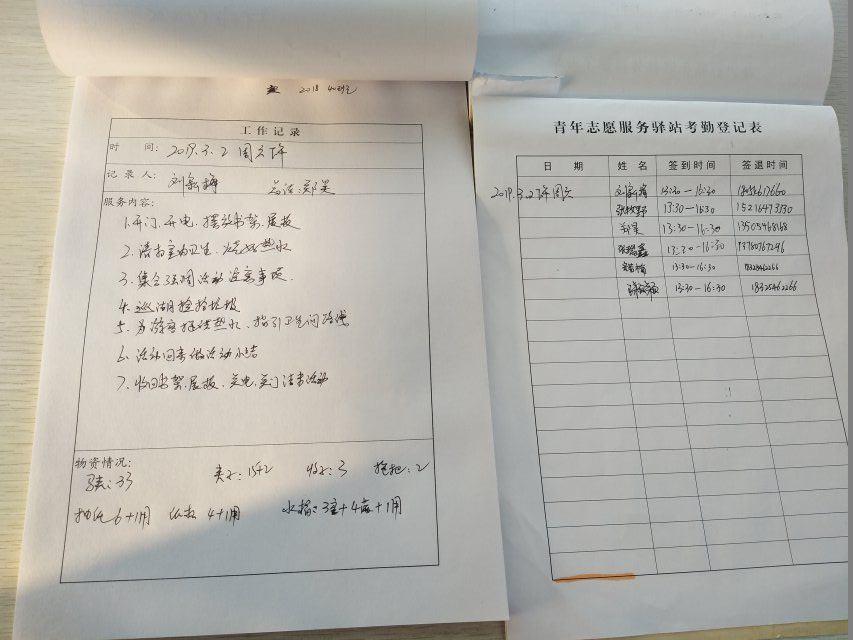 2018
工作记录
时 间: 2019.3.2 周六下午
记录人: 刘
服务内容:
1.开门、开电、摆放书架、展板
2.清扫室内卫生、烧好热水
3.集合强调活动注意事项.
4.巡湖捡拾垃圾
5.为游客提供热水、指引卫生间路线
6.活动回来做活动小结
7.收回书架、展板、关电、关门 结束活动
物资情况:
马夹:33 夹子:15+2 3 拖把:2
抽纸6+1用 纸杯 4+1用 水桶:3空+4满+1用
青年志愿服务驿站考勤登记表
日 期 姓 名 签到时间 签退时间
2019.3.2下午周六 刘 13:30-16:30
13:30-16:30
郑昊 13:30-16:30
张 13:30-16:30
13:30-16:30 18325462266
13:30-16:30 18325462266